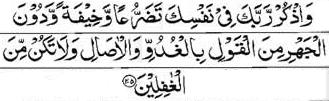 وَاذۡكُرۡ رَّبَّكَ فِیۡ نَفۡسِكَ تَضَرُّعًا وَّخِیۡفَةً وَّدُوۡنَ
الۡجَهۡرِ مِنَ الۡقَوۡلِ بِالۡغُدُوِّ وَالۡاٰصَالِ وَلَا تَكُنۡ مِّنَ
الۡغٰفِلِیۡنَ ﴿۲۰۵﴾